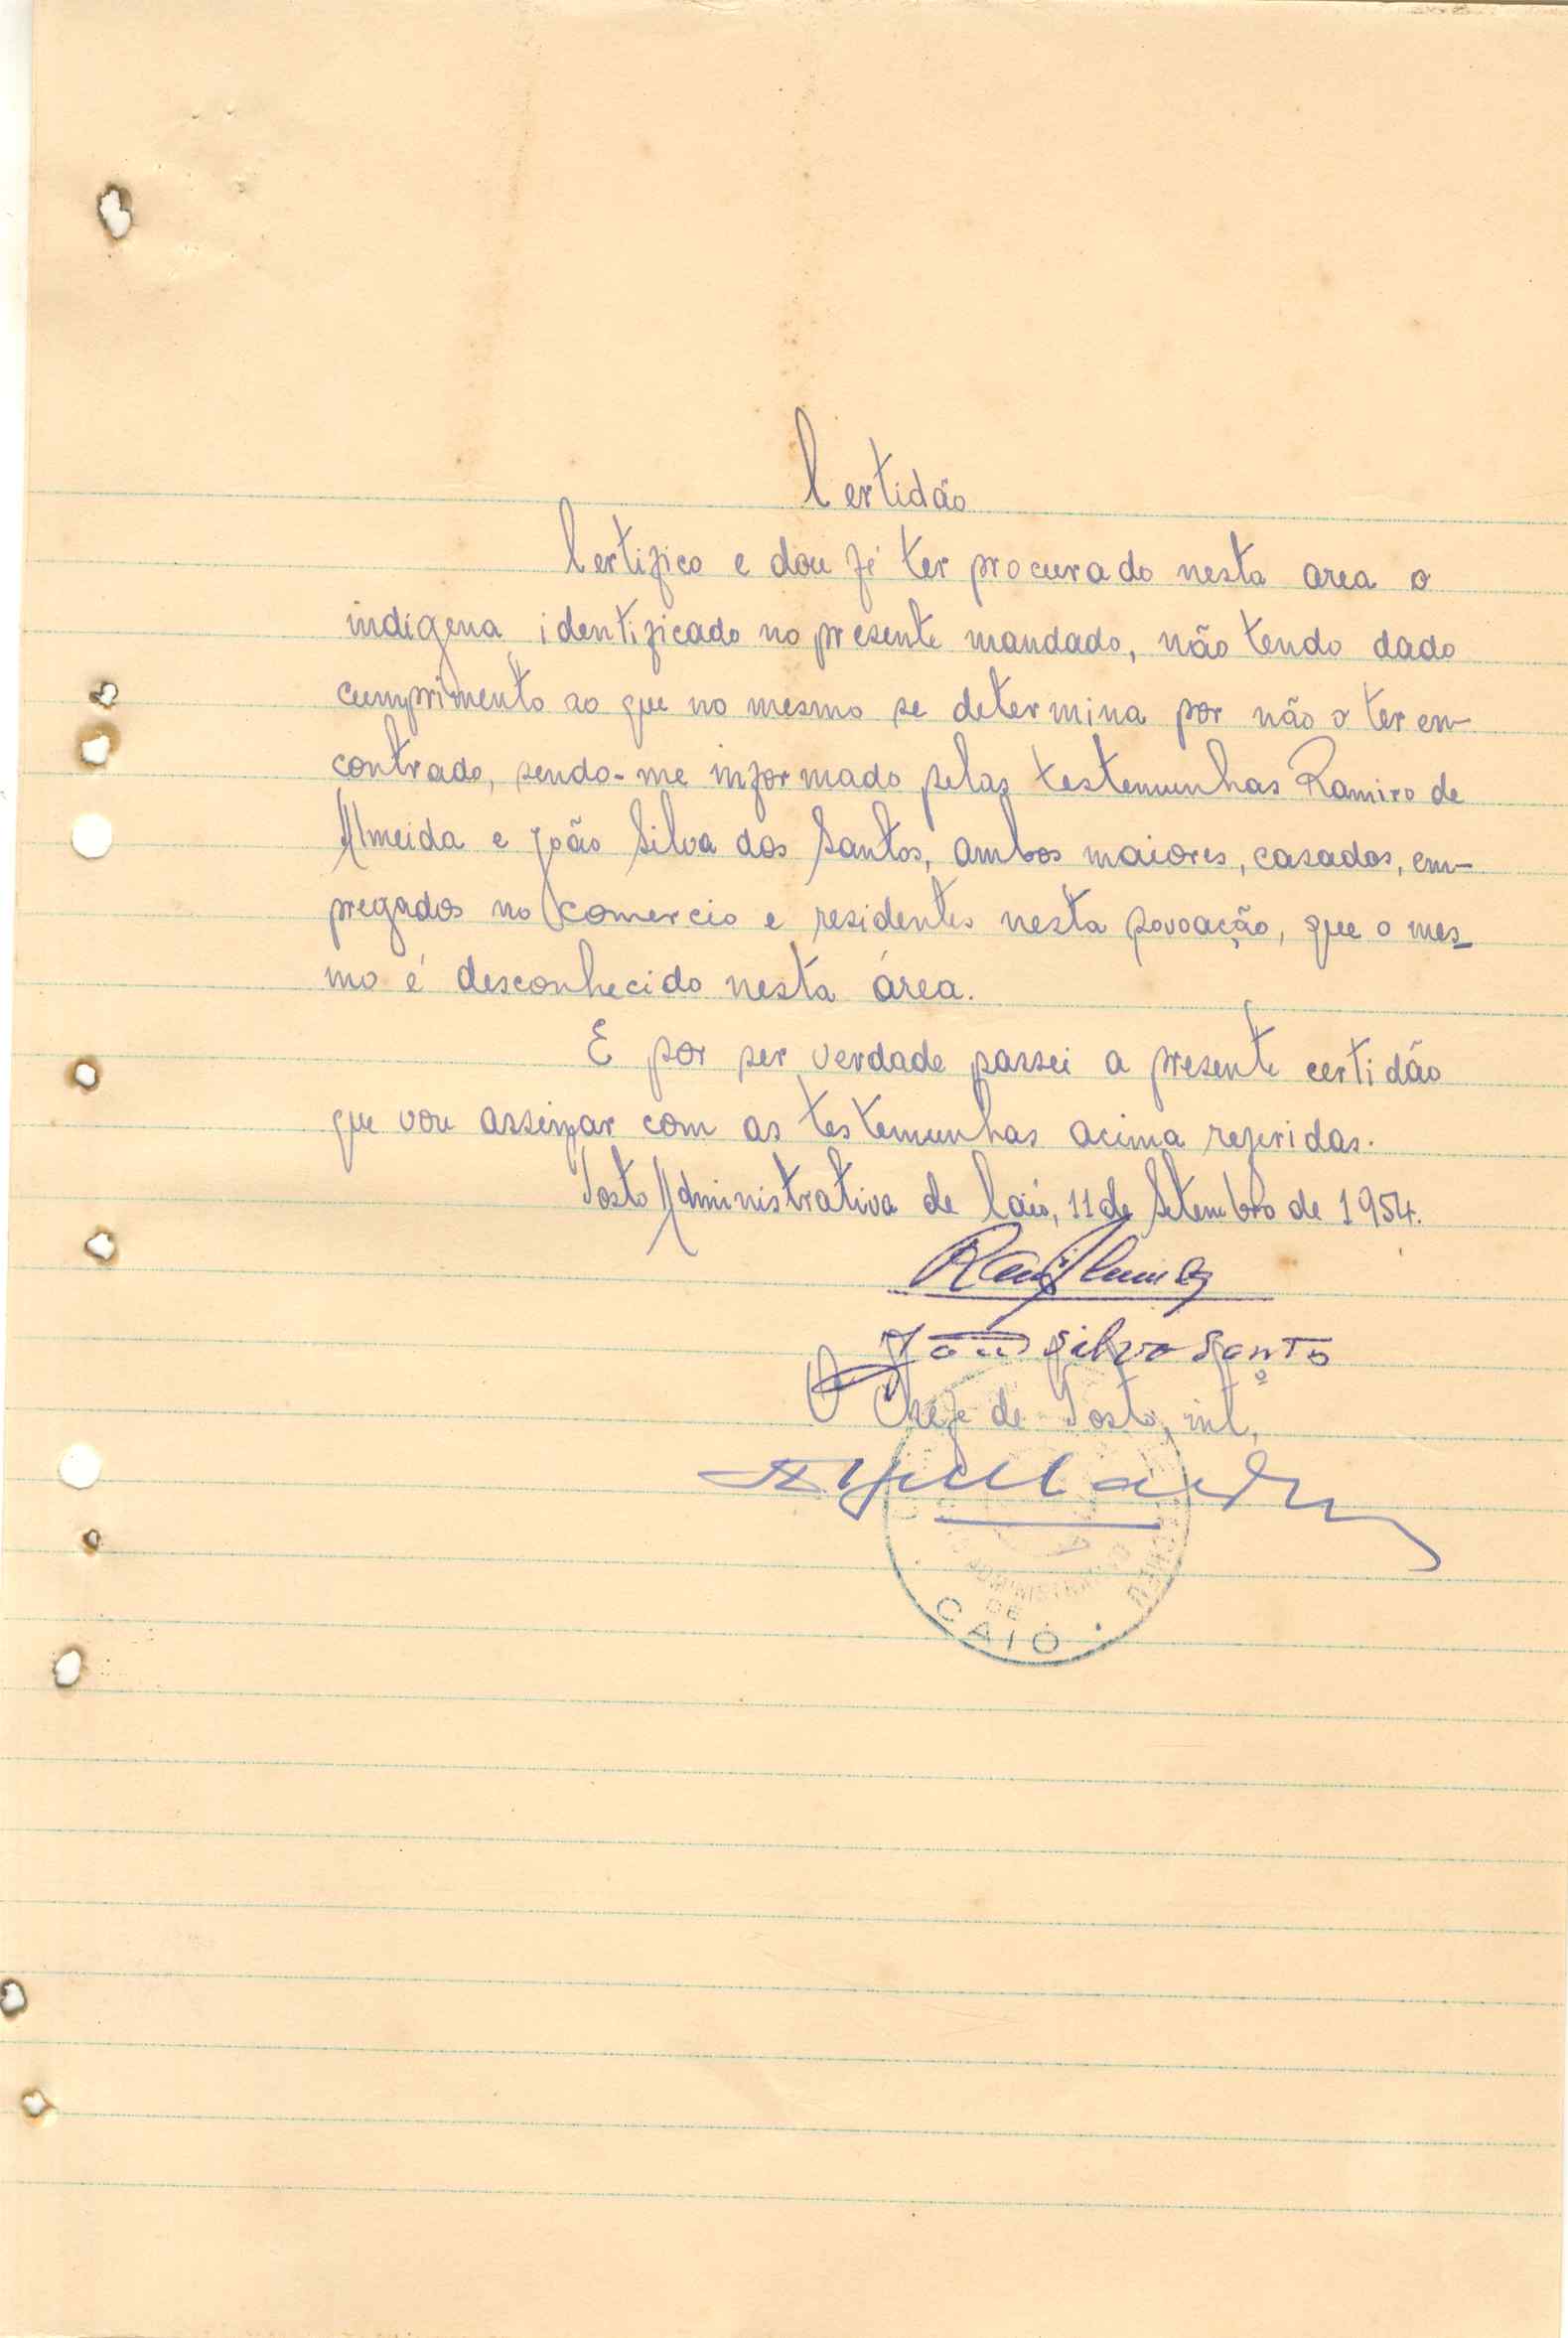 Certidão
Certifico e dou fé ter procurado nesta area o
indígena identificado no presente mandado, não tendo dado
cumprimento ao que no mesmo se determina por não o ter en-
contrado, sendo-me informado pelas testemunhas Ramiro de
Almeida e João Silva dos Santos, ambos maiores, casados, em-
pregados no comercio e residentes nesta povoação, que o mes-
mo é desconhecido nesta área.
E por ser verdade passei a presente certidão
que vou assinar com as testemunhas acima referidas.
Posto Administrativa de Caió, 11 de Setembro de 1954.
João Silva Santo
O Chefe de Posto, int.,
ADMINISTRATIVO
DE
CAIÓ